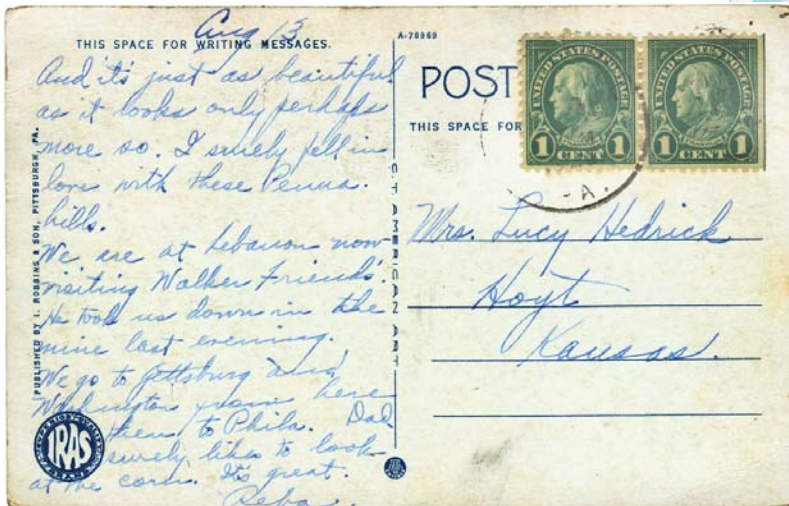 Aug 13
THIS SPACE FOR WRITING MESSAGES.
And it's just as beautiful
as it looks only perhaps
more so. I surely fell in
love with these Penna.
hills.
We are at Lebanon now
visiting Walker Friends.
He took us down in the
mine last evening.
We go to Gettsburg and
Washington from here
then to Phila. Dad
surely likes to look
at the corn. It's great.
Reba.
PUBLISHED BY I. ROBBINS & SON, PITTSBURGH, PA.
IRAS
C.T. AMERICAN ART
A-78969
POST
THIS SPACE FOR
UNITED STATES POSTAGE
1 CENT 1
UNITED STATES POSTAGE
1 CENT 1
-A.
Mrs. Lucy Hedrick
Hoyt
Kansas.